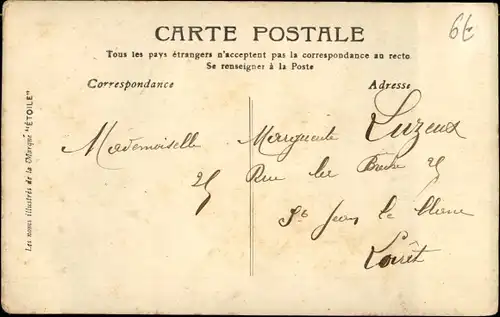 CARTE POSTALE
6€
Tous les pays étrangers n'acceptent pas la correspondance au recto
Se renseigner à la Poste
Correspondance
Adresse
Les noms illustrés de la Marque "ÉTOILE"
Mademoiselle Marguerite Luzeux
25 Rue des 25
St Jean le Blanc
Loiret